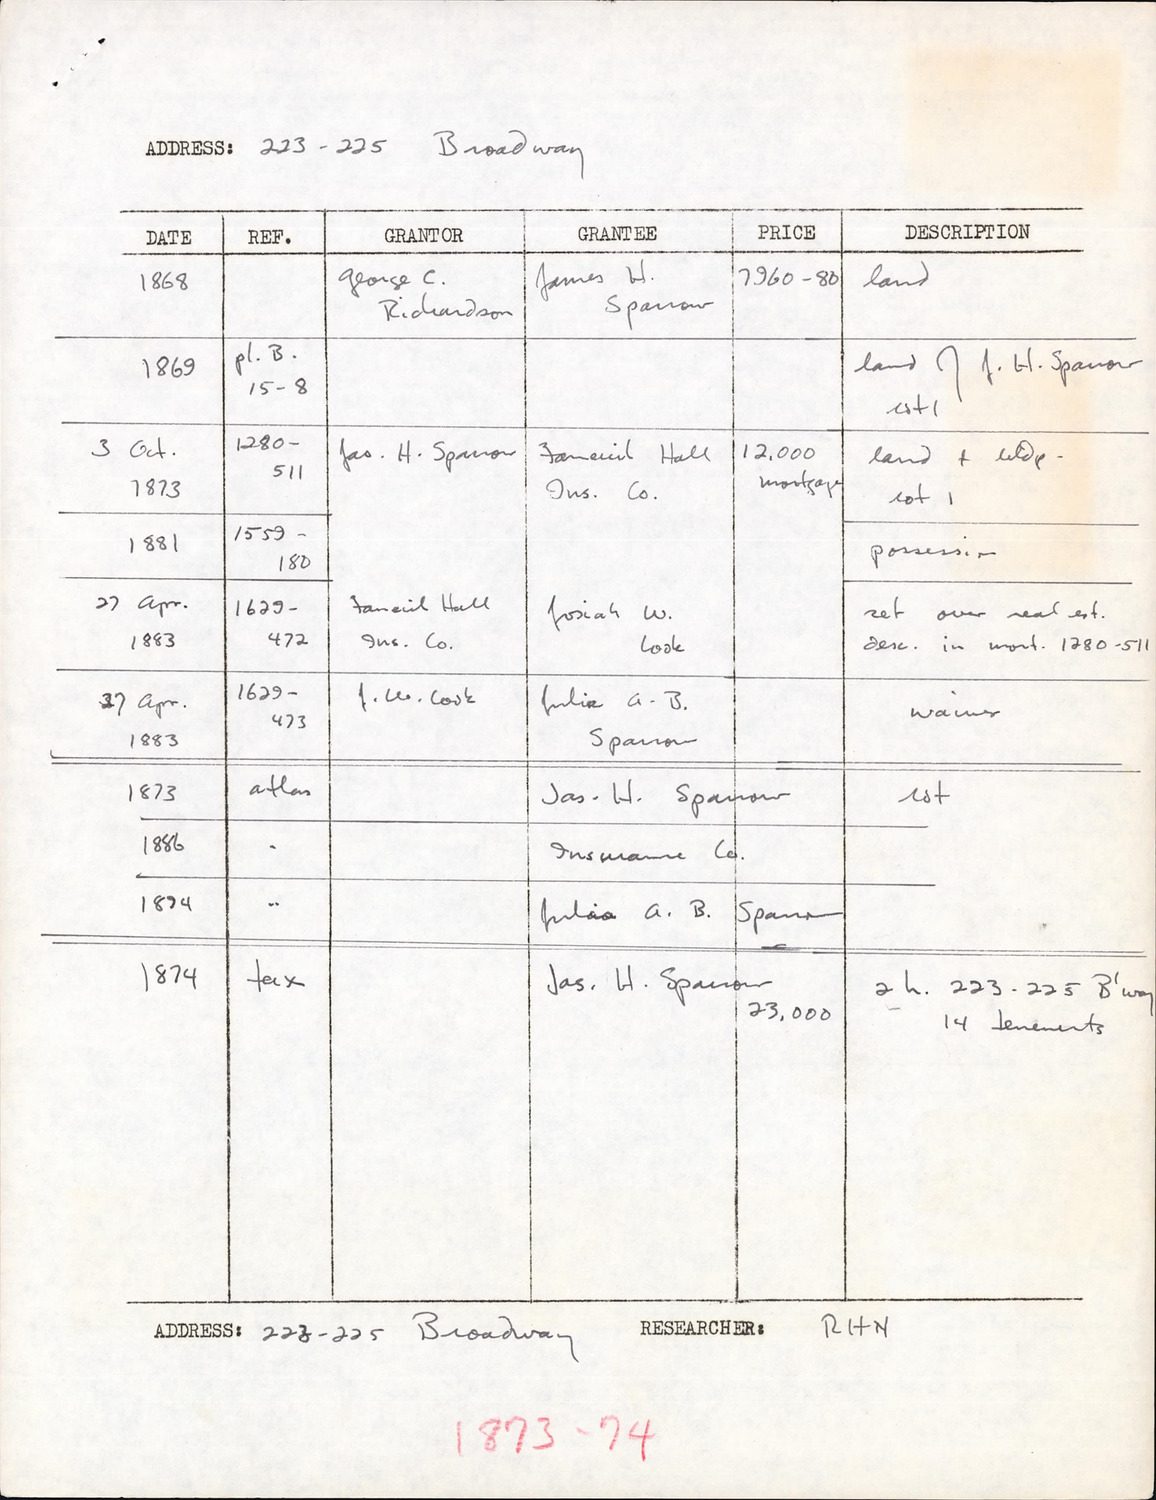 ADDRESS: 223-225 Broadway
DATE REF. GRANTOR GRANTEE PRICE DESCRIPTION
1868 George C. James H. 7960-80 land
Richardson Sparrow
1869 pl. B. land of J. H. Sparrow
15-8 lot 1
3 Oct. 1280- Jas. H. Sparrow Faneuil Hall 12,000 land + bldg-
1873 511 Ins. Co. mortgage lot 1
1881 1559- possession
180
27 Apr. 1629- Faneuil Hall Josiah W. set over real est.
1883 472 Ins. Co. Cook desc. in mort. 1280-511
27 Apr. 1629- J. W. Cook Julia A. B. waiver
1883 473 Sparrow
1873 atlas Jas. H. Sparrow lot
1886 " Insurance Co.
1894 " Julia A. B. Sparrow
1874 tax Jas. H. Sparrow 2 h. 223-225 B'way
23,000 14 tenements
ADDRESS: 223-225 Broadway RESEARCHER: RHN
1873-74